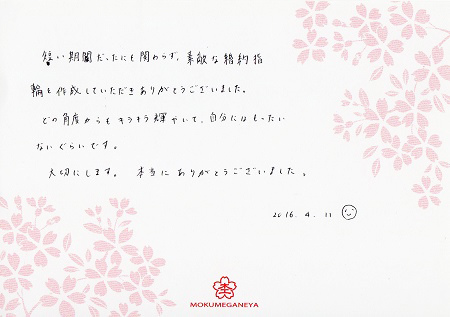 短い期間だったにも関わらず、素敵な婚約指
輪を作成していただきありがとうございました。
どの角度からもキラキラ輝やいて、自分にはもったい
ないぐらいです。
大切にします。 本当にありがとうございました。
2016. 4. 11
MOKUMEGANEYA